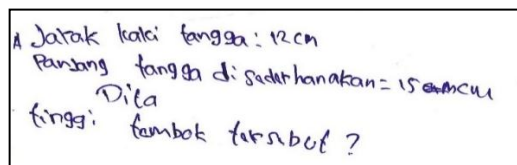 A Jarak kaki tangga: 12 cm
Panjang tangga di sederhanakan = 15 cm
Dita
tinggi tembok tersebut ?